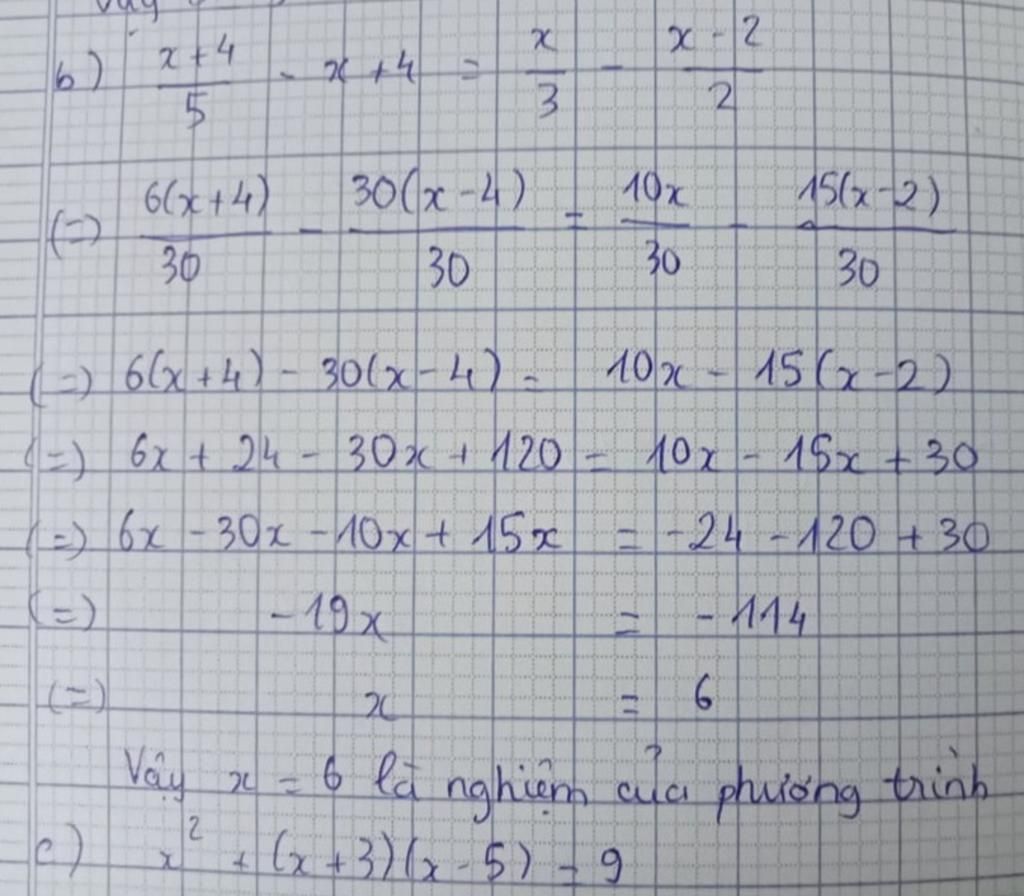 b) \frac{x+4}{5} - x + 4 = \frac{x}{3} - \frac{x-2}{2}
(=) \frac{6(x+4)}{30} - \frac{30(x-4)}{30} = \frac{10x}{30} - \frac{15(x-2)}{30}
(=) 6(x+4) - 30(x-4) = 10x - 15(x-2)
(=) 6x + 24 - 30x + 120 = 10x - 15x + 30
(=) 6x - 30x - 10x + 15x = -24 - 120 + 30
(=) -19x = -114
(=) x = 6
Vậy x = 6 là nghiệm của phương trình
c) x^2 + (x+3)(x-5) = 9